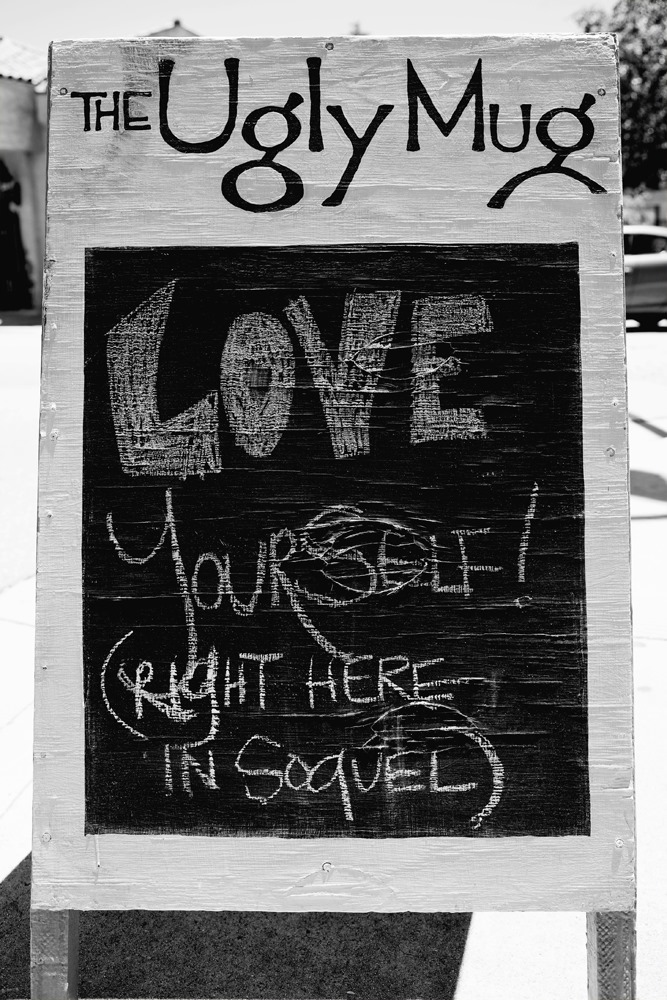 THE Ugly Mug
LOVE
YOURSELF!
(RIgHT HERE
IN SOqUEL)